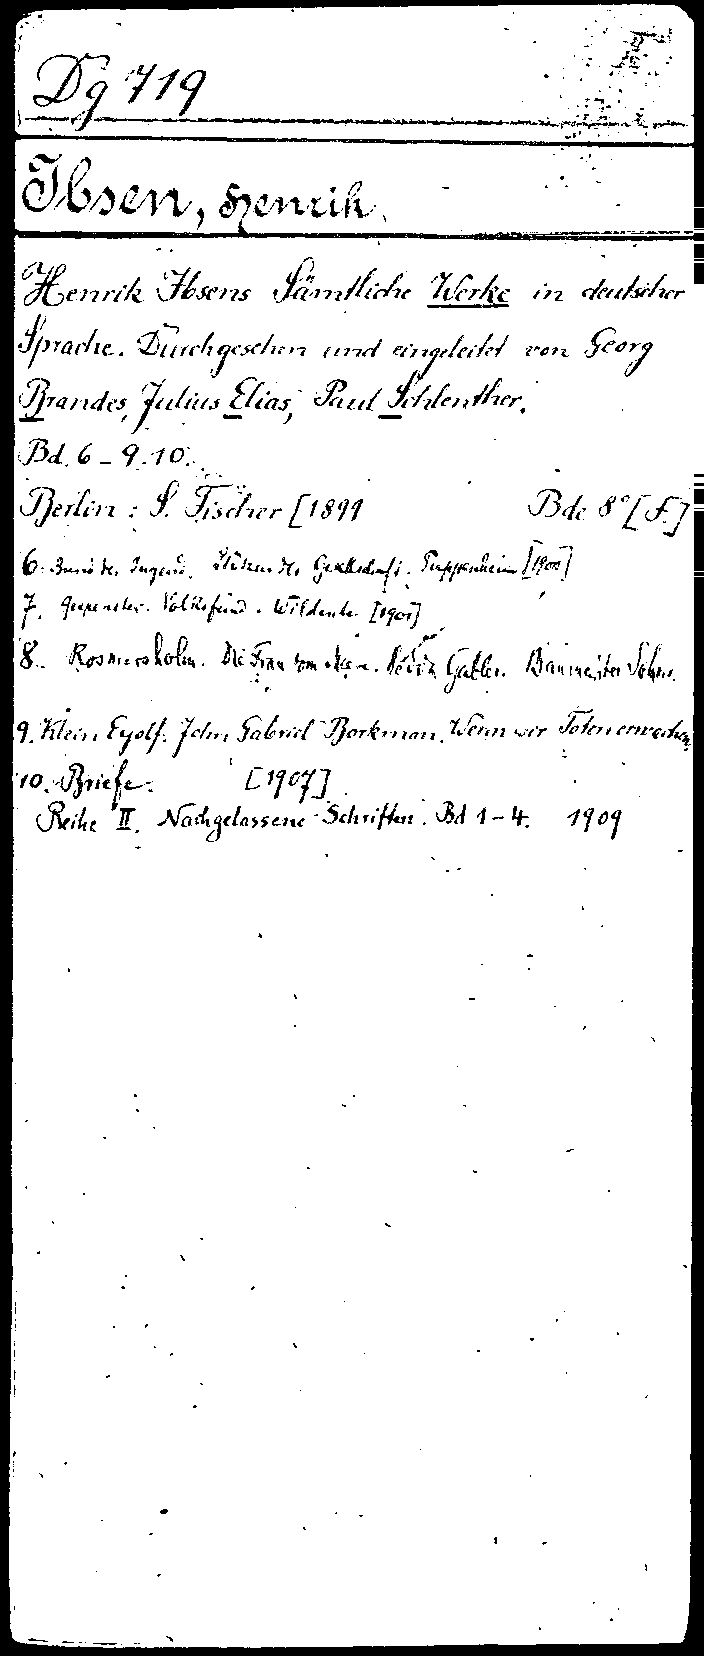 Dg 719
Ibsen, Henrik.
Henrik Ibsens Sämtliche Werke in deutscher
Sprache. Durchgesehen und eingeleitet von Georg
Brandes, Julius Elias, Paul Schlenther.
Bd. 6-9.10.
Berlin: S. Fischer [1899 Bde 8° [F.]
6. Bund der Jugend. Stützen der Gesellschaft. Puppenheim [1900]
7. Gespenster. Volksfeind. Wildente [1901]
8. Rosmersholm. Die Frau vom Meere. Hedda Gabler. Baumeister Solness.
9. Klein Eyolf. John Gabriel Borkman. Wenn wir Toten erwachen.
10. Briefe. [1907]
Reihe II. Nachgelassene Schriften. Bd 1-4. 1909